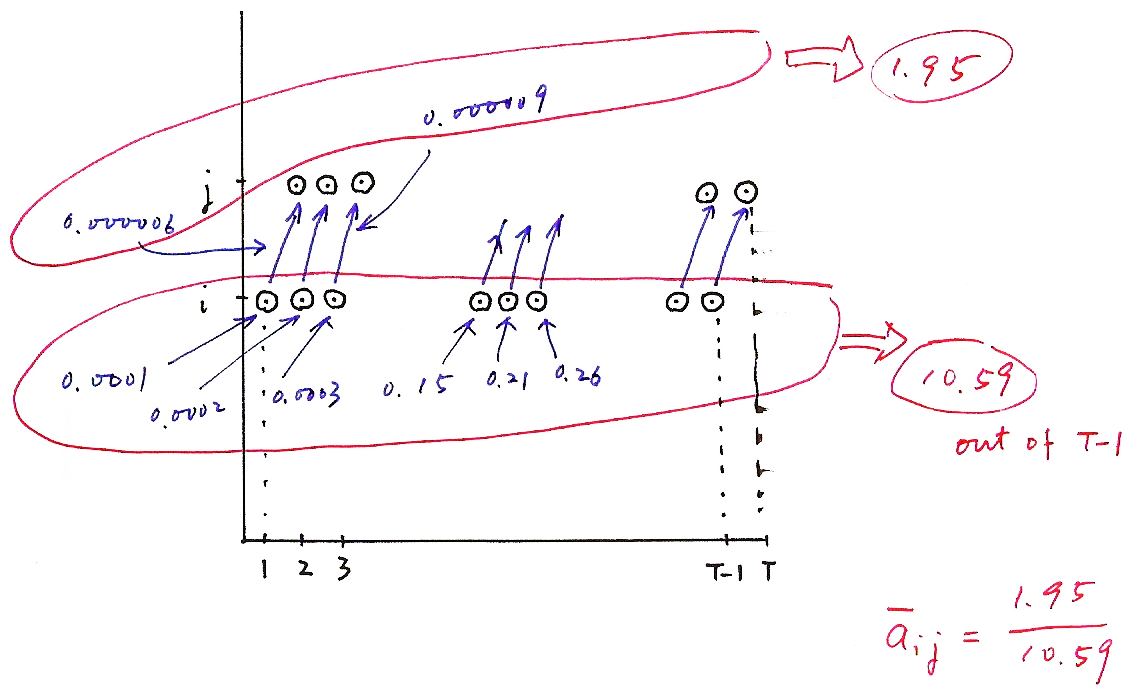 1.95
0.000009
j
0.000006
i
0.0001
0.0002
0.0003
0.15
0.21
0.26
10.59
out of T-1
1 2 3 T-1 T
a̅ij = 1.95 / 10.59